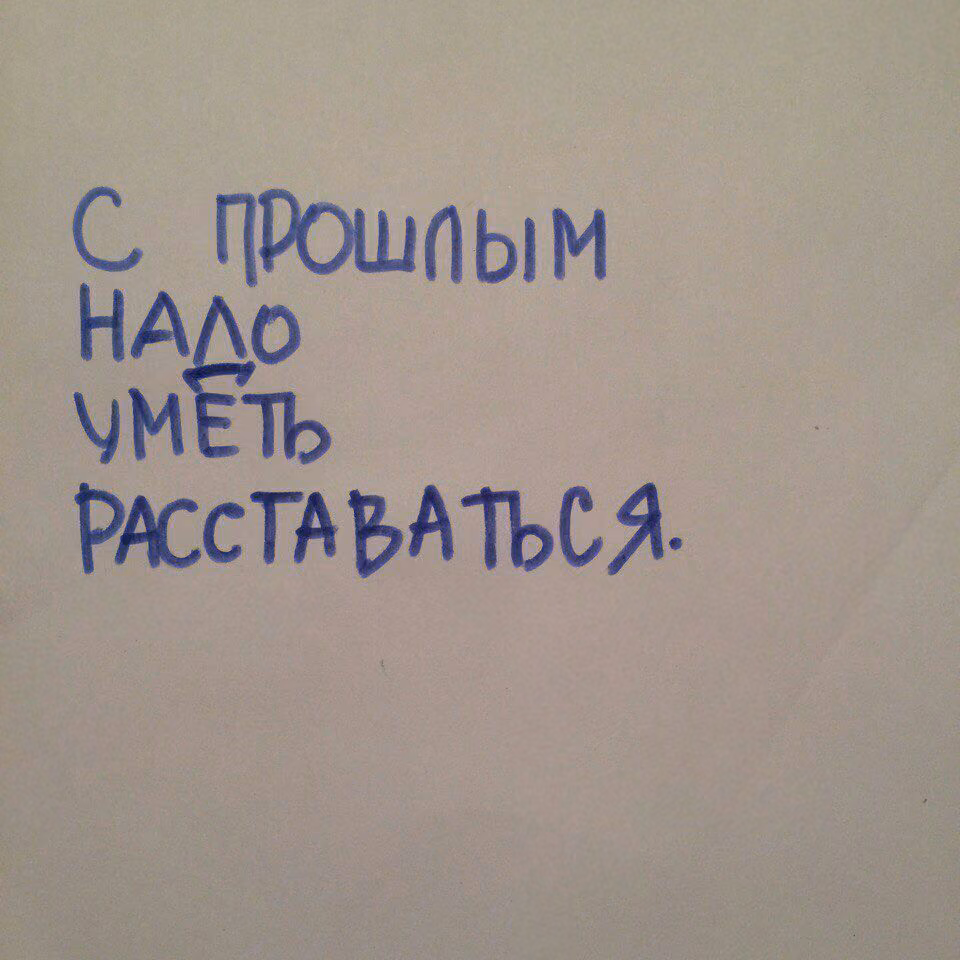 С ПРОШЛЫМ
НАДО
УМЕТЬ
РАССТАВАТЬСЯ.